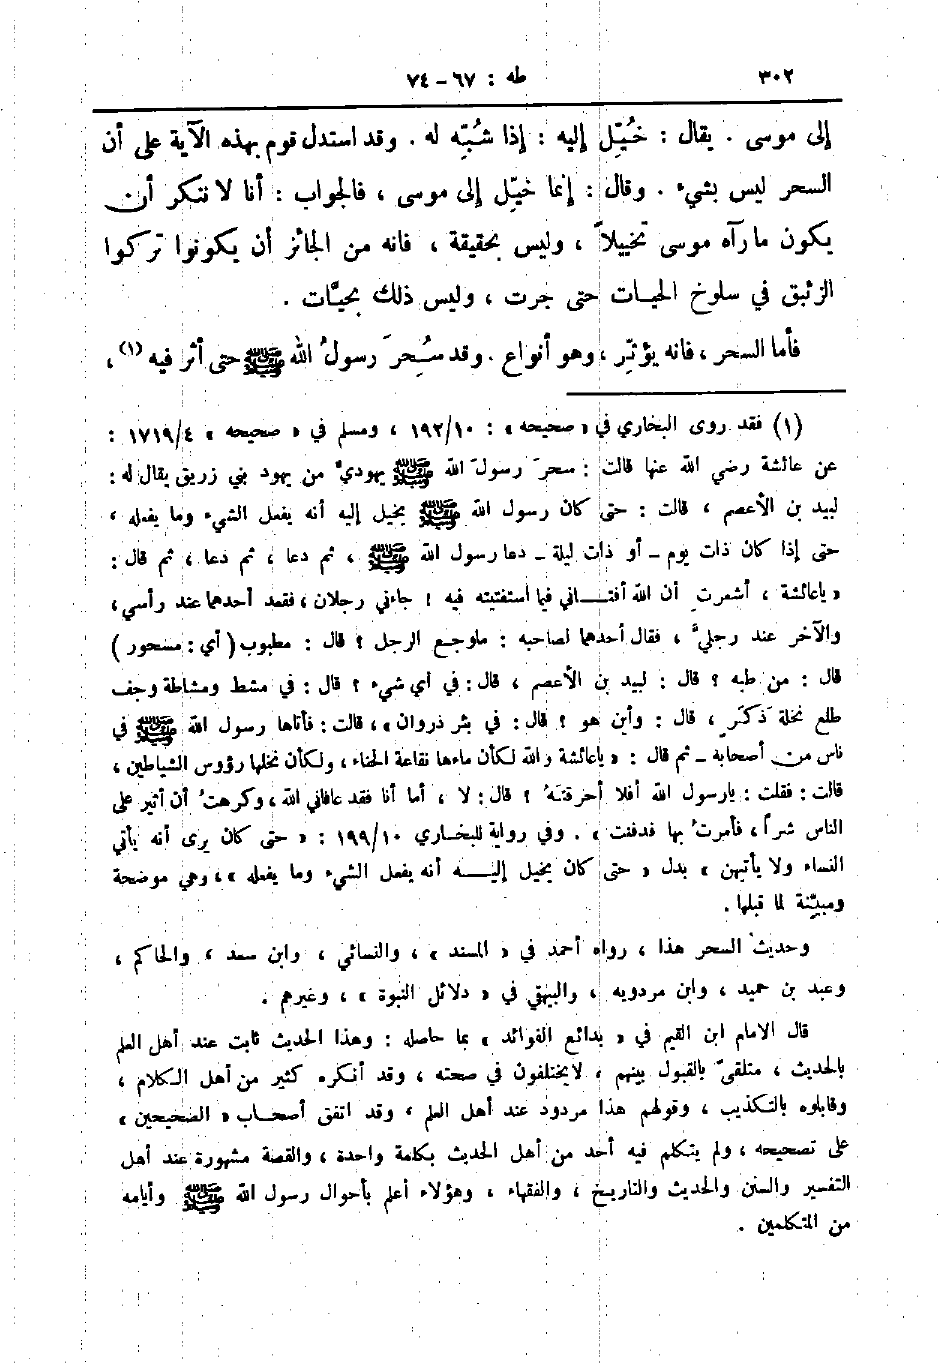 ٣٠٢ طه : ٦٧ - ٧٤
إلى موسى . يقال : خُيِّل إليه : إذا شُبِّه له . وقد استدل قوم بهذه الآية على أن
السحر ليس بشيء . وقال : إنما خيّل إلى موسى ، فالجواب : أنا لا ننكر أن
يكون ما رآه موسى تخييلاً ، وليس بحقيقة ، فانه من الجائز أن يكونوا تركوا
الزئبق في سلوخ الحيات حتى جرت ، وليس ذلك بحيَّات .
فأما السحر ، فانه يؤثِّر ، وهو أنواع . وقد سُحِرَ رسولُ الله ﷺ حتى أثر فيه (١) ،
(١) فقد روى البخاري في « صحيحه » : ١٩٢/١٠ ، ومسلم في « صحيحه » ١٧١٩/٤ :
عن عائشة رضي الله عنها قالت : سحرَ رسولَ الله ﷺ يهوديٌ من يهود بني زريق يقال له :
لبيد بن الأعصم ، قالت : حتى كان رسول الله ﷺ يخيل إليه أنه يفعل الشيء وما يفعله ،
حتى إذا كان ذات يوم - أو ذات ليلة - دعا رسول الله ﷺ ، ثم دعا ، ثم دعا ، ثم قال :
« ياعائشة ، أشعرتِ أن الله أفتاني فيما استفتيته فيه ؟ جاءني رجلان ، فقعد أحدهما عند رأسي ،
والآخر عند رجليَّ ، فقال أحدهما لصاحبه : ماوجع الرجل ؟ قال : مطبوب ( أي : مسحور )
قال : من طبه ؟ قال : لبيد بن الأعصم ، قال : في أي شيء ؟ قال : في مشط ومشاطة وجف
طلع نخلة ذكَرٍ ، قال : وأين هو ؟ قال : في بئر ذروان » ، قالت : فأتاها رسول الله ﷺ في
ناس من أصحابه - ثم قال : « ياعائشة والله لكأن ماءها نقاعة الحناء ، ولكأن نخلها رؤوس الشياطين ،
قالت : فقلت : يارسول الله أفلا أحرقتَهُ ؟ قال : لا ، أما أنا فقد عافاني الله ، وكرهتُ أن أثير على
الناس شراً ، فأمرتُ بها فدفنت » . وفي رواية للبخاري ١٩٩/١٠ : « حتى كان يرى أنه يأتي
النساء ولا يأتيهن » بدل « حتى كان يخيل إليه أنه يفعل الشيء وما يفعله » ، وهي موضحة
ومبيِّنة لما قبلها .
وحديثُ السحر هذا ، رواه أحمد في « المسند » ، والنسائي ، وابن سعد ، والحاكم ،
وعبد بن حميد ، وابن مردويه ، والبيهقي في « دلائل النبوة » ، وغيرهم .
قال الامام ابن القيم في « بدائع الفوائد » بما حاصله : وهذا الحديث ثابت عند أهل العلم
بالحديث ، متلقىً بالقبول بينهم ، لايختلفون في صحته ، وقد أنكره كثير من أهل الكلام ،
وقابلوه بالتكذيب ، وقولهم هذا مردود عند أهل العلم ، وقد اتفق أصحاب « الصحيحين »
على تصحيحه ، ولم يتكلم فيه أحد من أهل الحديث بكلمة واحدة ، والقصة مشهورة عند أهل
التفسير والسنن والحديث والتاريخ ، والفقهاء ، وهؤلاء أعلم بأحوال رسول الله ﷺ وأيامه
من المتكلمين .